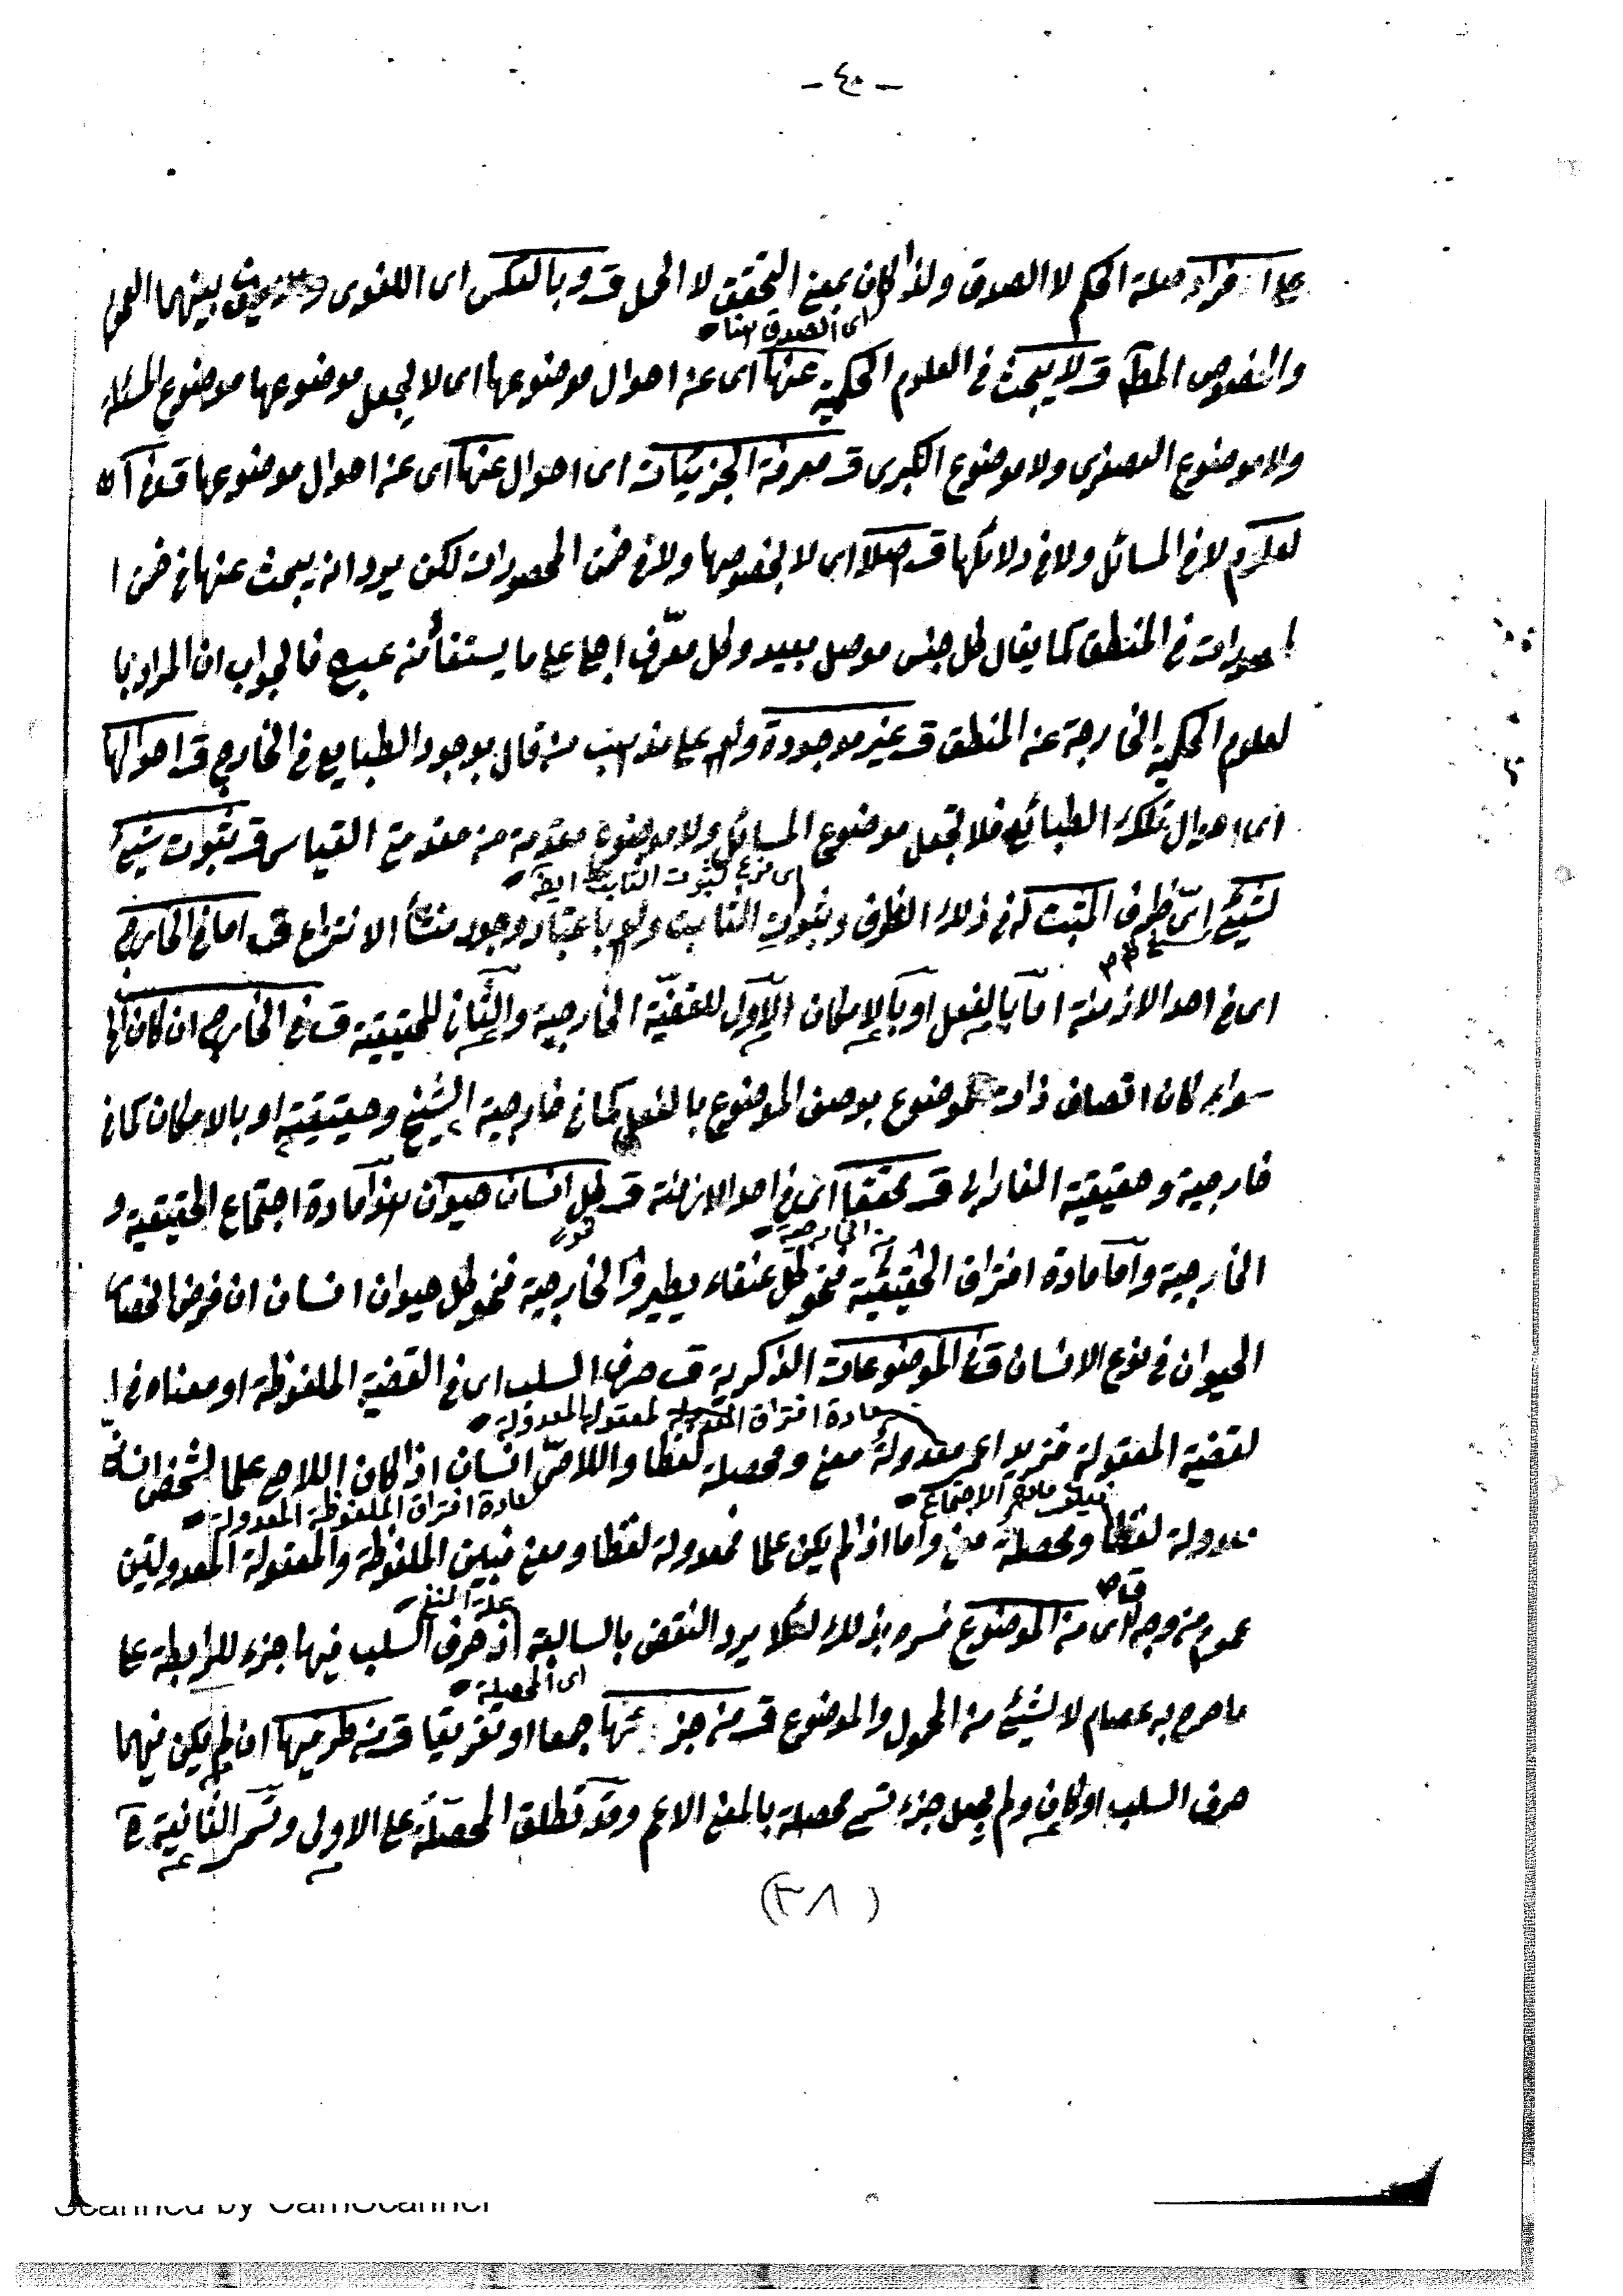 - ٤٠ -
على افراد صلة الحكم لا الصدق ولذا كان بمعنى التحقق لا الحمل قـ وبالعكس اى اللغوى بينهما العموم
اى الصدق هنا
والخصوص المط قـ لا يبحث فى العلوم الحكمية عنها اى عن احوال موضوعها اى لا يجعل موضوعها موضوع المسئلة
ولا موضوع الصغرى ولا موضوع الكبرى قـ معرفة الجزئيات اى احوال عنها اى عن احوال موضوعها قـ فى ا
لعلوم لا فى المسائل ولا فى دلائلها قـ اصلا اى لا بخصوصها ولا فى ضمن المحصورات لكن يرد انه يبحث عنها فى ضمن ا
لمحصورات فى المنطق كما يقال كل جنس موصل بعيد وكل معرّف اجلى على ما يستفاد من عبد فالجواب ان المراد با
لعلوم الحكمية الخارجة عن المنطق قـ غير موجودة ولو على مذهب من قال بوجود الطبايع فى الخارج قـ احوالها
اى احوال تلك الطبائع فلا تجعل موضوع المسائل ولا موضوع مقدمة من مقدمتى القياس قـ ثبوت شيئ
اى فرع لثبوت الثابت ايضا
لشيئ اى ظرف المثبت له فى ذلك الظرف وبثبوت الثابت ولو باعتبار وجود منشأ الانتزاع قـ اما فى الخارج
اى فى احد الازمنة اما بالفعل او بالامكان الاول للقضيّة الخارجية والثانى للحقيقية قـ فى الخارج ان كان لها
سواء كان اتصاف ذات الموضوع بوصف الموضوع بالفعل كما فى خارجية الشيخ وحقيقيته او بالامكان كما فى
خارجية وحقيقية الفارابى قـ محققا اى فى احد الازمنة قـ كل انسان حيوان هذا مادة اجتماع الحقيقية و
من الخارجية
الخارجية واما مادة افتراق الحقيقية فنحو كل عنقاء يطير والخارجية فنحو كل حيوان انسان ان فرض انحصار
الحيوان فى نوع الانسان قـ فى الموضوعات الذكرية قـ حرف السلب اى فى القضية الملفوظة او معناه فى ا
مادة افتراق المعقولة المعدولة
لقضية المعقولة فنزيد اعمى معدولة معنى ومحصلة لفظا واللاحىّ انسان اذا كان اللاحى علما لشخص انسان
فيكون مادة الاجتماع
مادة افتراق الملفوظة المعدولة
معدولة لفظا ومحصلة معنى واما اذا لم يكن علما فمعدولة لفظا ومعنى فبين الملفوظة والمعقولة المعدولتين
علة النفى
عموم من وجه قـ اى من الموضوع فسره بذلك لئلا يرد النقض بالسالبة اذ حرف السلب فيها جزء للرابطة على
اى المحصلة
ما صرح به عصام لا لشيئ من المحمول والموضوع قـ من جزء جمعا او تفريقا قـ من طرفيها ان لم يكن فيهما
حرف السلب او كان ولم يجعل جزء تسمى محصلة بالمعنى الاعم وقد تطلق المحصلة على الاولى وتسمى الثانية
(٣٨)
Scanned by CamScanner